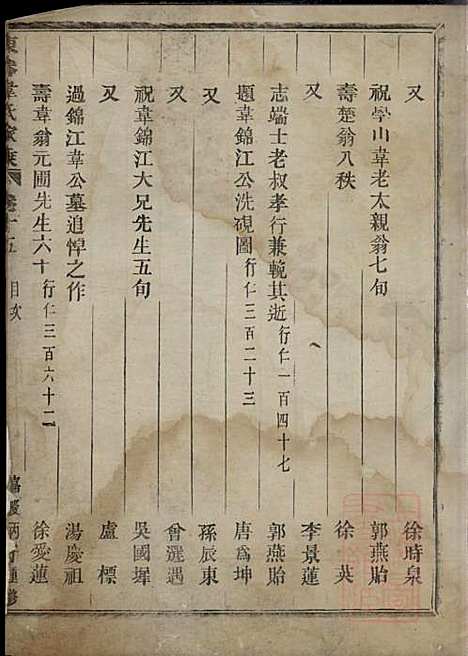 又 徐時泉
祝學山韋老太親翁七旬 郭燕貽
又 徐英
壽楚翁八秩 李景蓮
志端士老叔孝行兼輓其逝 行仁一百四十七 郭燕貽
題韋錦江公洗硯圖 行仁三百二十三 唐為坤
又 孫辰東
又 曾選遇
祝韋錦江大兄先生五旬 吳國墀
又 盧標
過錦江韋公墓追悼之作 湯慶祖
壽韋翁元圃先生六十 行仁三百六十二 徐愛蓮
韋氏家乘 卷十五 目次 嘉慶丙重修